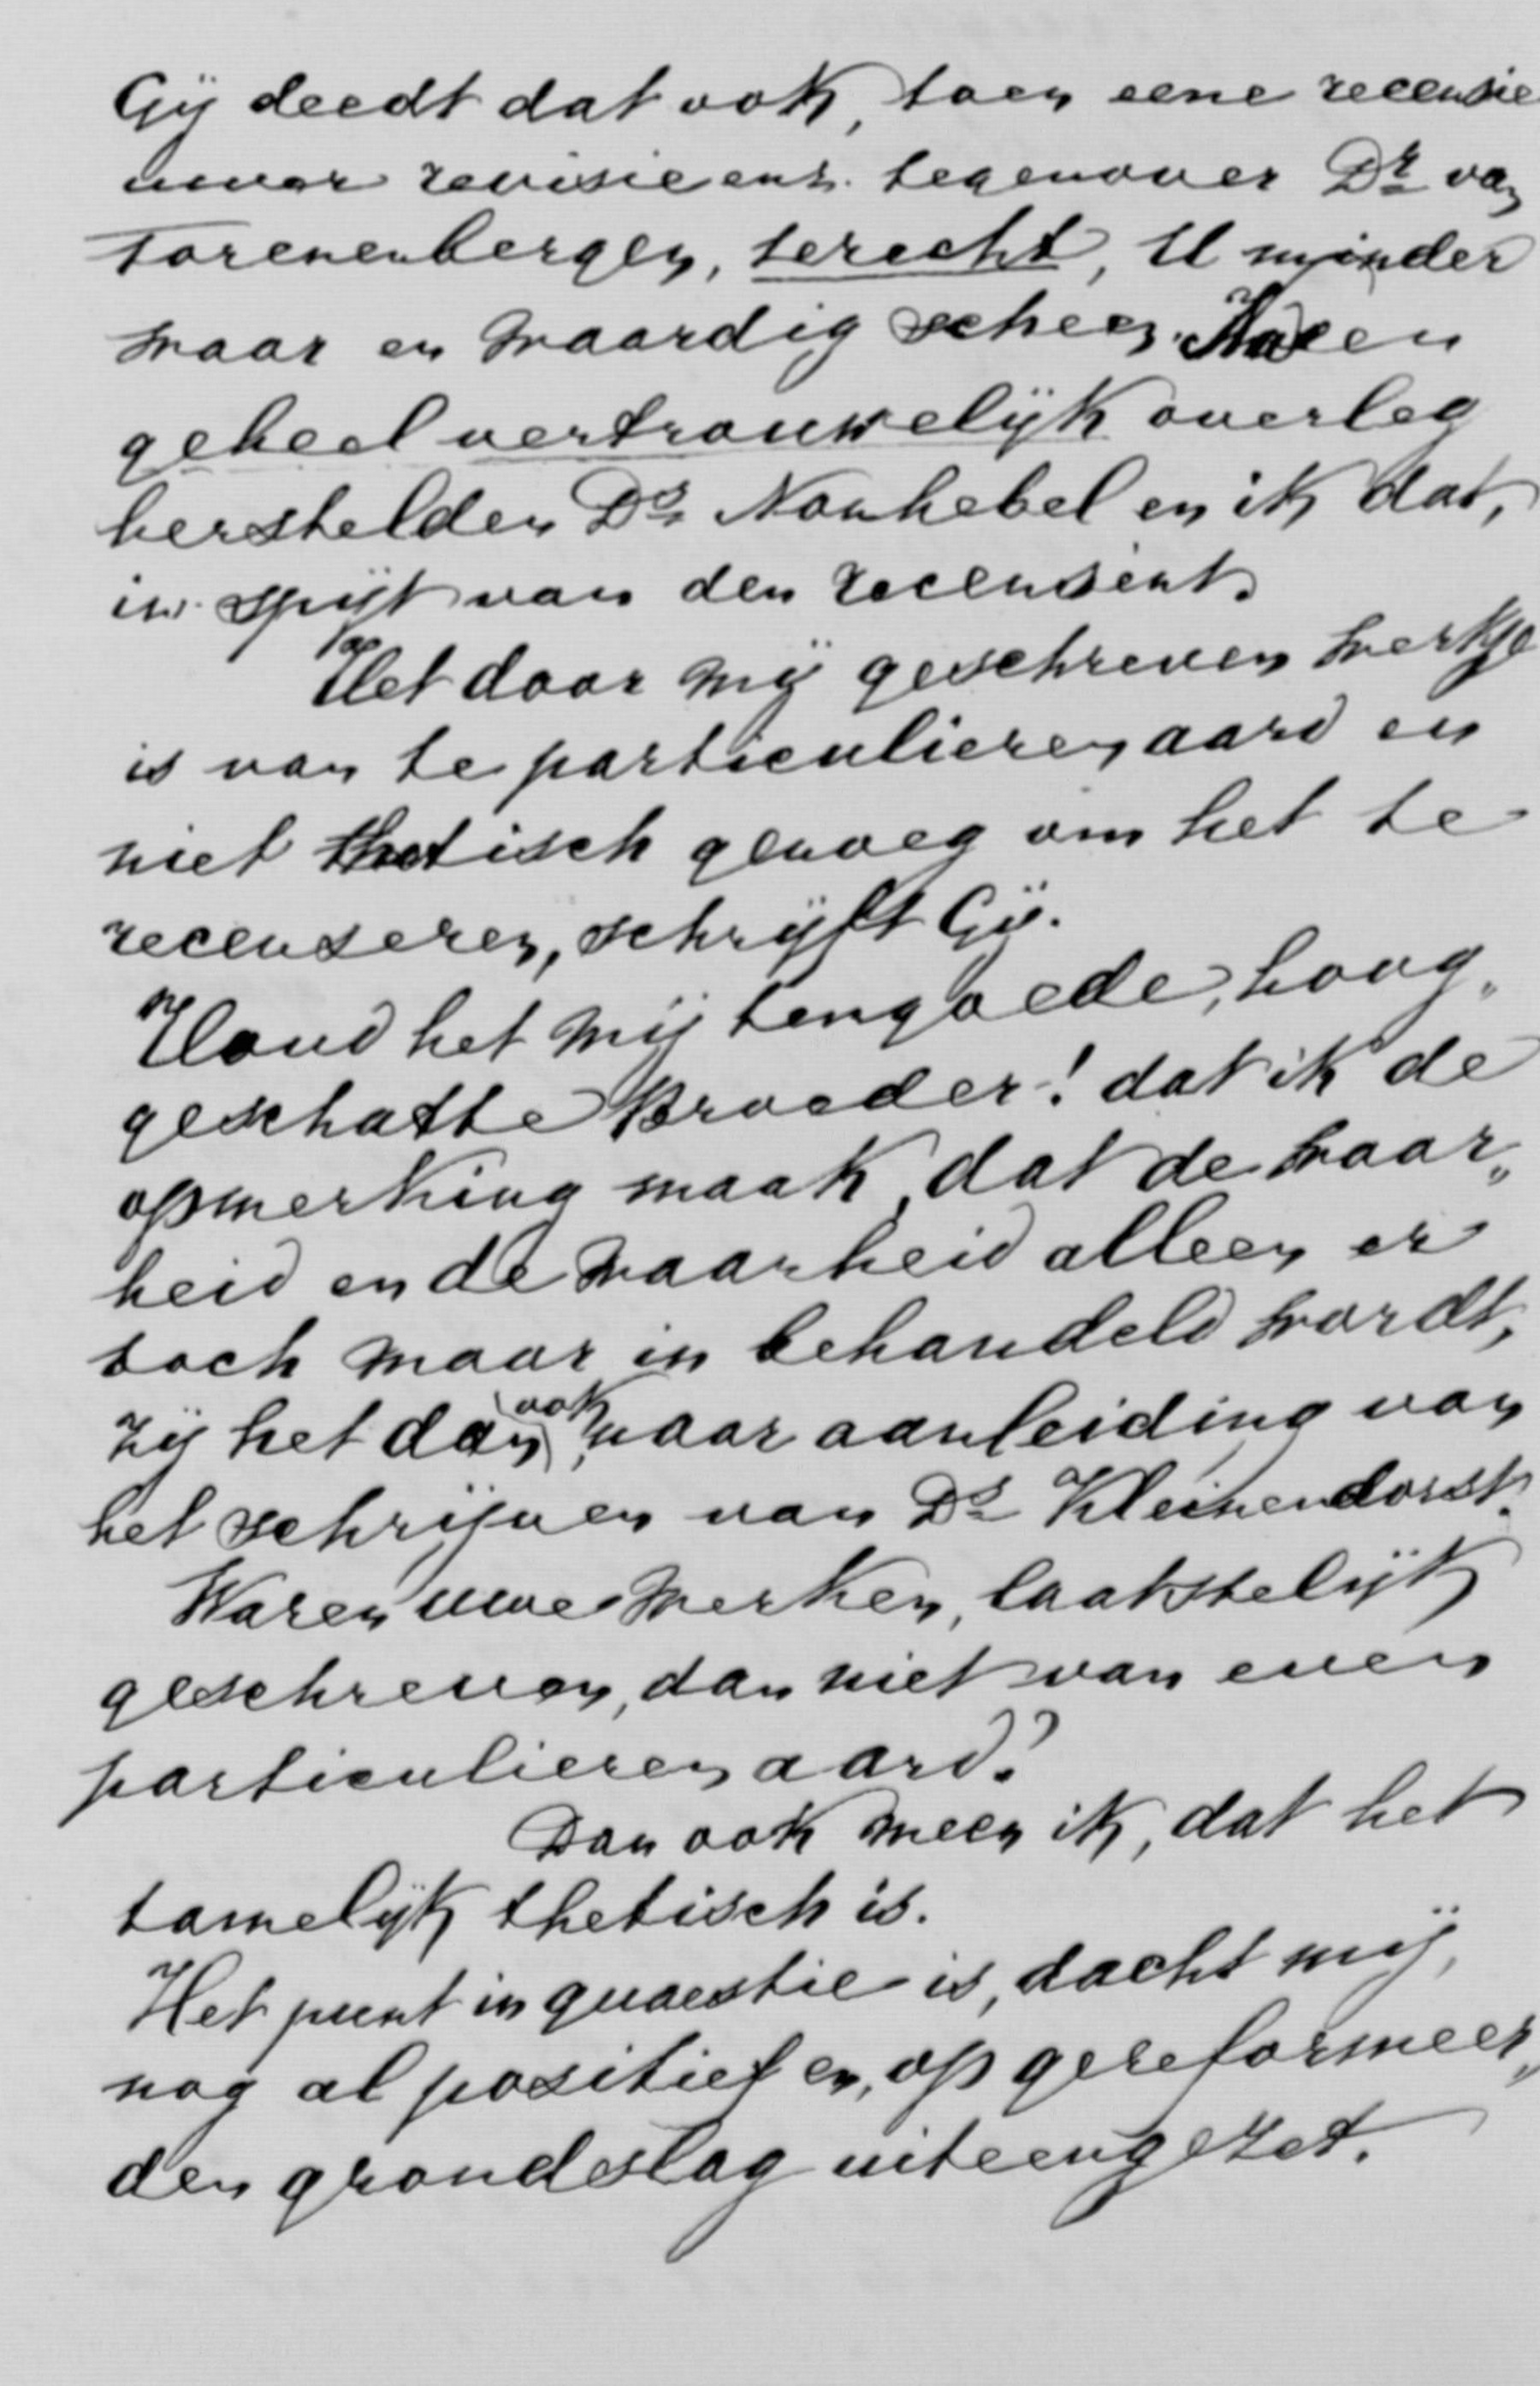 Gij deedt dat ook, toen eene recensie
uwer revisie enz. tegenover Dr. van
Torenenbergen, terecht, U minder
waar en waardig scheen. Na een
geheel vertrouwelijk overleg
herstelden Ds. Nonhebel en ik dat,
in spijt van den recensent.
Het door mij geschreven werkje
is van te particulieren aard en
niet thetisch genoeg om het te
recenseren, schrijft Gij.
Houd het mij tengoede, hoog„
geschatte Broeder! dat ik de
opmerking maak, dat de waar„
heid en de waarheid alleen er
toch maar in behandeld wordt,
zij het dan ook, naar aanleiding van
het schrijven van Ds. Kleinendorst.
Waren uwe werken, laatstelijk
geschreven, dan niet van even
particulieren aard?
Dan ook meen ik, dat het
tamelijk thetisch is.
Het punt in quaestie is, dacht mij,
nog al positief en, op gereformeer„
den grondslag uiteengezet.